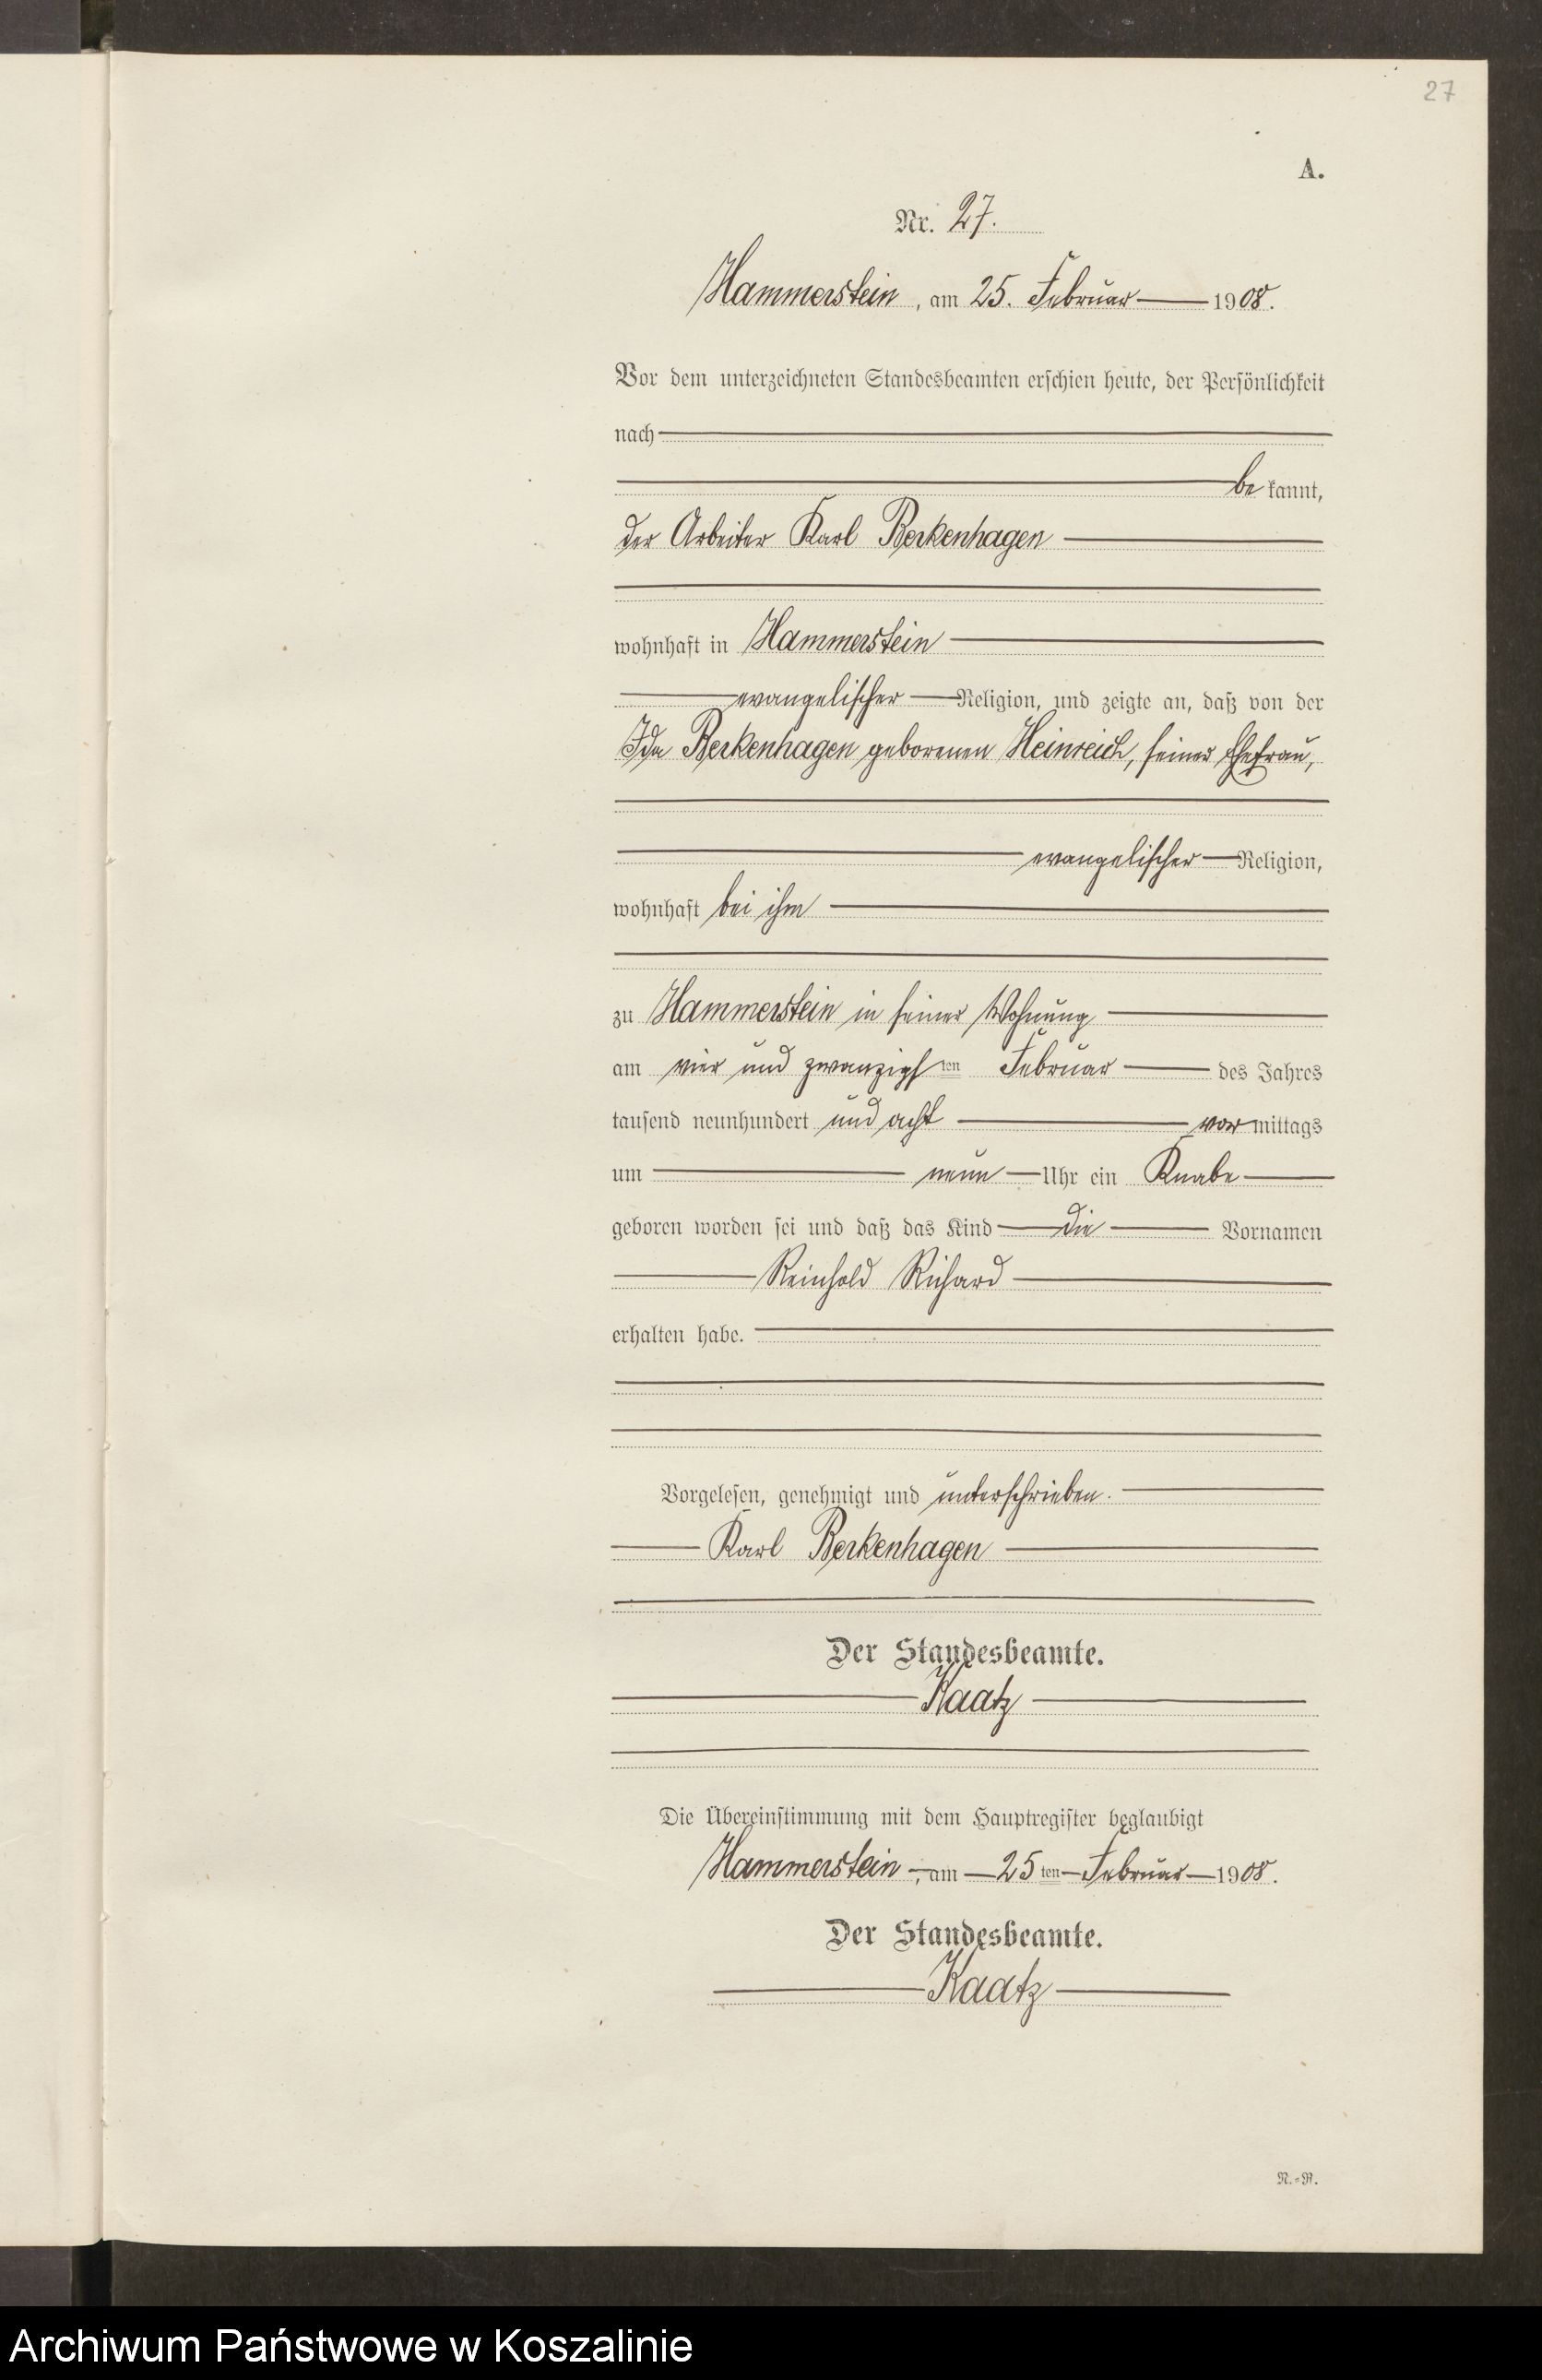 27
A.
Nr. 27.
Hammerstein, am 25. Februar 1908.
Vor dem unterzeichneten Standesbeamten erschien heute, der Persönlichkeit
nach
be kannt,
der Arbeiter Karl Berkenhagen
wohnhaft in Hammerstein
evangelischer Religion, und zeigte an, daß von der
Ida Berkenhagen geborenen Heinreich, seiner Ehefrau,
evangelischer Religion,
wohnhaft bei ihm
zu Hammerstein in seiner Wohnung
am vier und zwanzigsten Februar des Jahres
tausend neunhundert und acht vormittags
um neun Uhr ein Knabe
geboren worden sei und daß das Kind die Vornamen
Reinhold Richard
erhalten habe.
Vorgelesen, genehmigt und unterschrieben.
Karl Berkenhagen
Der Standesbeamte.
Kaatz
Die Übereinstimmung mit dem Hauptregister beglaubigt
Hammerstein, am 25ten Februar 1908.
Der Standesbeamte.
Kaatz
N.=R.
Archiwum Państwowe w Koszalinie